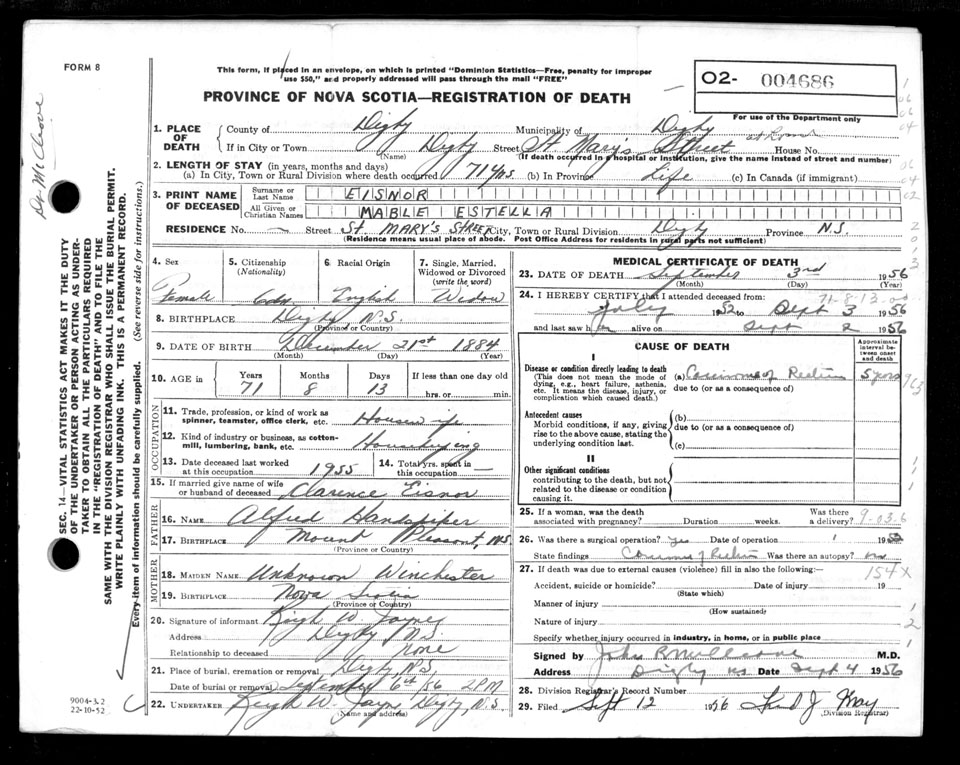 FORM 8
This form, if placed in an envelope, on which is printed "Dominion Statistics—Free, penalty for improper
use $50," and properly addressed will pass through the mail "FREE"
O2- 004686
For use of the Department only
PROVINCE OF NOVA SCOTIA—REGISTRATION OF DEATH
1. PLACE OF DEATH
County of Digby Municipality of Digby
If in City or Town Digby Street St Mary's Street House No.
(Name) (If death occurred in a hospital or institution, give the name instead of street and number)
2. LENGTH OF STAY (in years, months and days)
(a) In City, Town or Rural Division where death occurred 71 yrs. (b) In Province Life (c) In Canada (if immigrant)
3. PRINT NAME OF DECEASED
Surname or Last Name EISNOR
All Given or Christian Names MABLE ESTELLA
RESIDENCE No. — Street ST. MARY'S STREET City, Town or Rural Division Digby Province N.S.
(Residence means usual place of abode. Post Office Address for residents in rural parts not sufficient)
4. Sex Female
5. Citizenship (Nationality) Cdn
6. Racial Origin English
7. Single, Married, Widowed or Divorced (write the word) Widow
8. BIRTHPLACE Digby N.S.
(Province or Country)
9. DATE OF BIRTH December 21st 1884
(Month) (Day) (Year)
10. AGE in Years 71 Months 8 Days 13 If less than one day old
hrs. or min.
OCCUPATION
11. Trade, profession, or kind of work as spinner, teamster, office clerk, etc. Housewife
12. Kind of industry or business, as cotton-mill, lumbering, bank, etc.
13. Date deceased last worked at this occupation 1955
14. Total yrs. spent in this occupation —
15. If married give name of wife or husband of deceased Clarence Eisnor
FATHER
16. NAME Alfred Handspiker
17. BIRTHPLACE Mount Pleasant, N.S.
(Province or Country)
MOTHER
18. MAIDEN NAME Unknown Winchester
19. BIRTHPLACE Nova Scotia
(Province or Country)
20. Signature of informant Keigh W Jayne
Address Digby N.S.
Relationship to deceased None
21. Place of burial, cremation or removal Digby, N.S.
Date of burial or removal September 6th /56 2PM
22. UNDERTAKER Keigh W. Jayne Digby, N.S.
(Name and address)
MEDICAL CERTIFICATE OF DEATH
23. DATE OF DEATH September 3rd 1956
(Month) (Day) (Year)
71-8-13-00
24. I HEREBY CERTIFY that I attended deceased from:
July 1952 to Sept 3 1956
and last saw her alive on Sept 2 1956
CAUSE OF DEATH
Approximate interval between onset and death
I
Disease or condition directly leading to death
(This does not mean the mode of dying, e.g., heart failure, asthenia, etc. It means the disease, injury, or complication which caused death.)
(a) Carcinoma of Rectum 5 years
due to (or as a consequence of)
Antecedent causes
Morbid conditions, if any, giving rise to the above cause, stating the underlying condition last.
(b)
due to (or as a consequence of)
(c)
II
Other significant conditions
contributing to the death, but not related to the disease or condition causing it.
25. If a woman, was the death associated with pregnancy? Duration weeks. Was there a delivery? 9-03.6
26. Was there a surgical operation? yes Date of operation 1952
State findings Carcinoma of Rectum Was there an autopsy? no
27. If death was due to external causes (violence) fill in also the following:— 154X
Accident, suicide or homicide? Date of injury 19
(State which)
Manner of injury
(How sustained)
Nature of injury
Specify whether injury occurred in industry, in home, or in public place
Signed by M.D.
Address Digby NS Date Sept 4 1956
28. Division Registrar's Record Number
29. Filed Sept 12 1956 May
(Division Registrar)
SEC. 14—VITAL STATISTICS ACT MAKES IT THE DUTY
OF THE UNDERTAKER OR PERSON ACTING AS UNDER-
TAKER TO OBTAIN ALL THE PARTICULARS REQUIRED
IN THE "REGISTRATION OF DEATH" AND TO FILE THE
SAME WITH THE DIVISION REGISTRAR WHO SHALL ISSUE THE BURIAL PERMIT.
WRITE PLAINLY WITH UNFADING INK. THIS IS A PERMANENT RECORD.
Every item of information should be carefully supplied. (See reverse side for instructions.)
9004-3.2
22-10-52